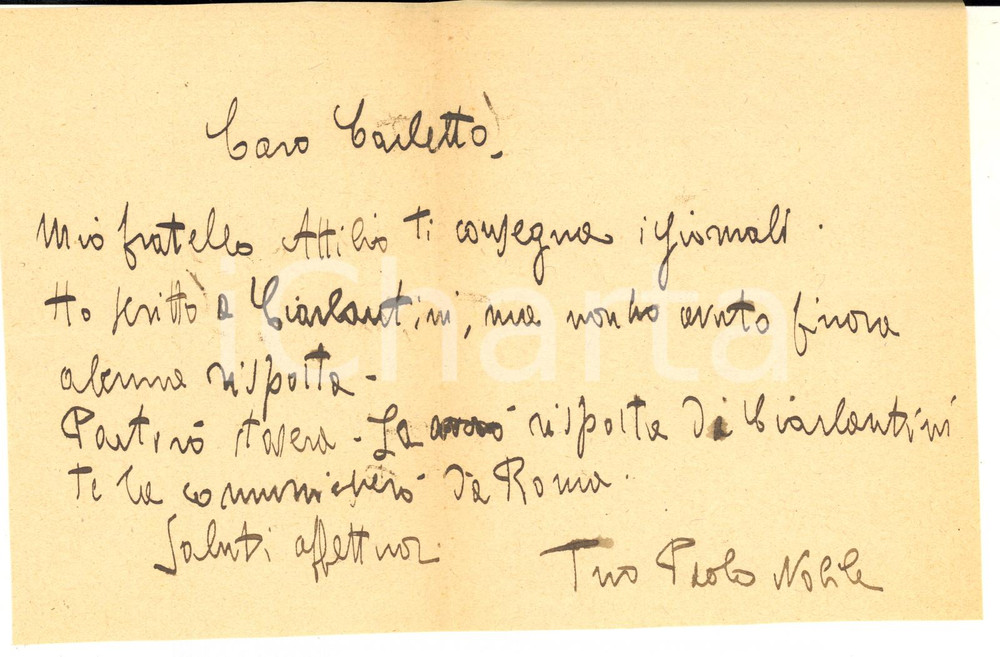 Caro Carletto,
Mio fratello Attilio ti consegna i giornali.
Ho scritto a Ciarlantini, ma non ho avuto finora
alcuna risposta -
Partirò stasera - La risposta di Ciarlantini
te la comunicherò da Roma.
Saluti affettuosi
Tuo Paolo Nobile
iCharta